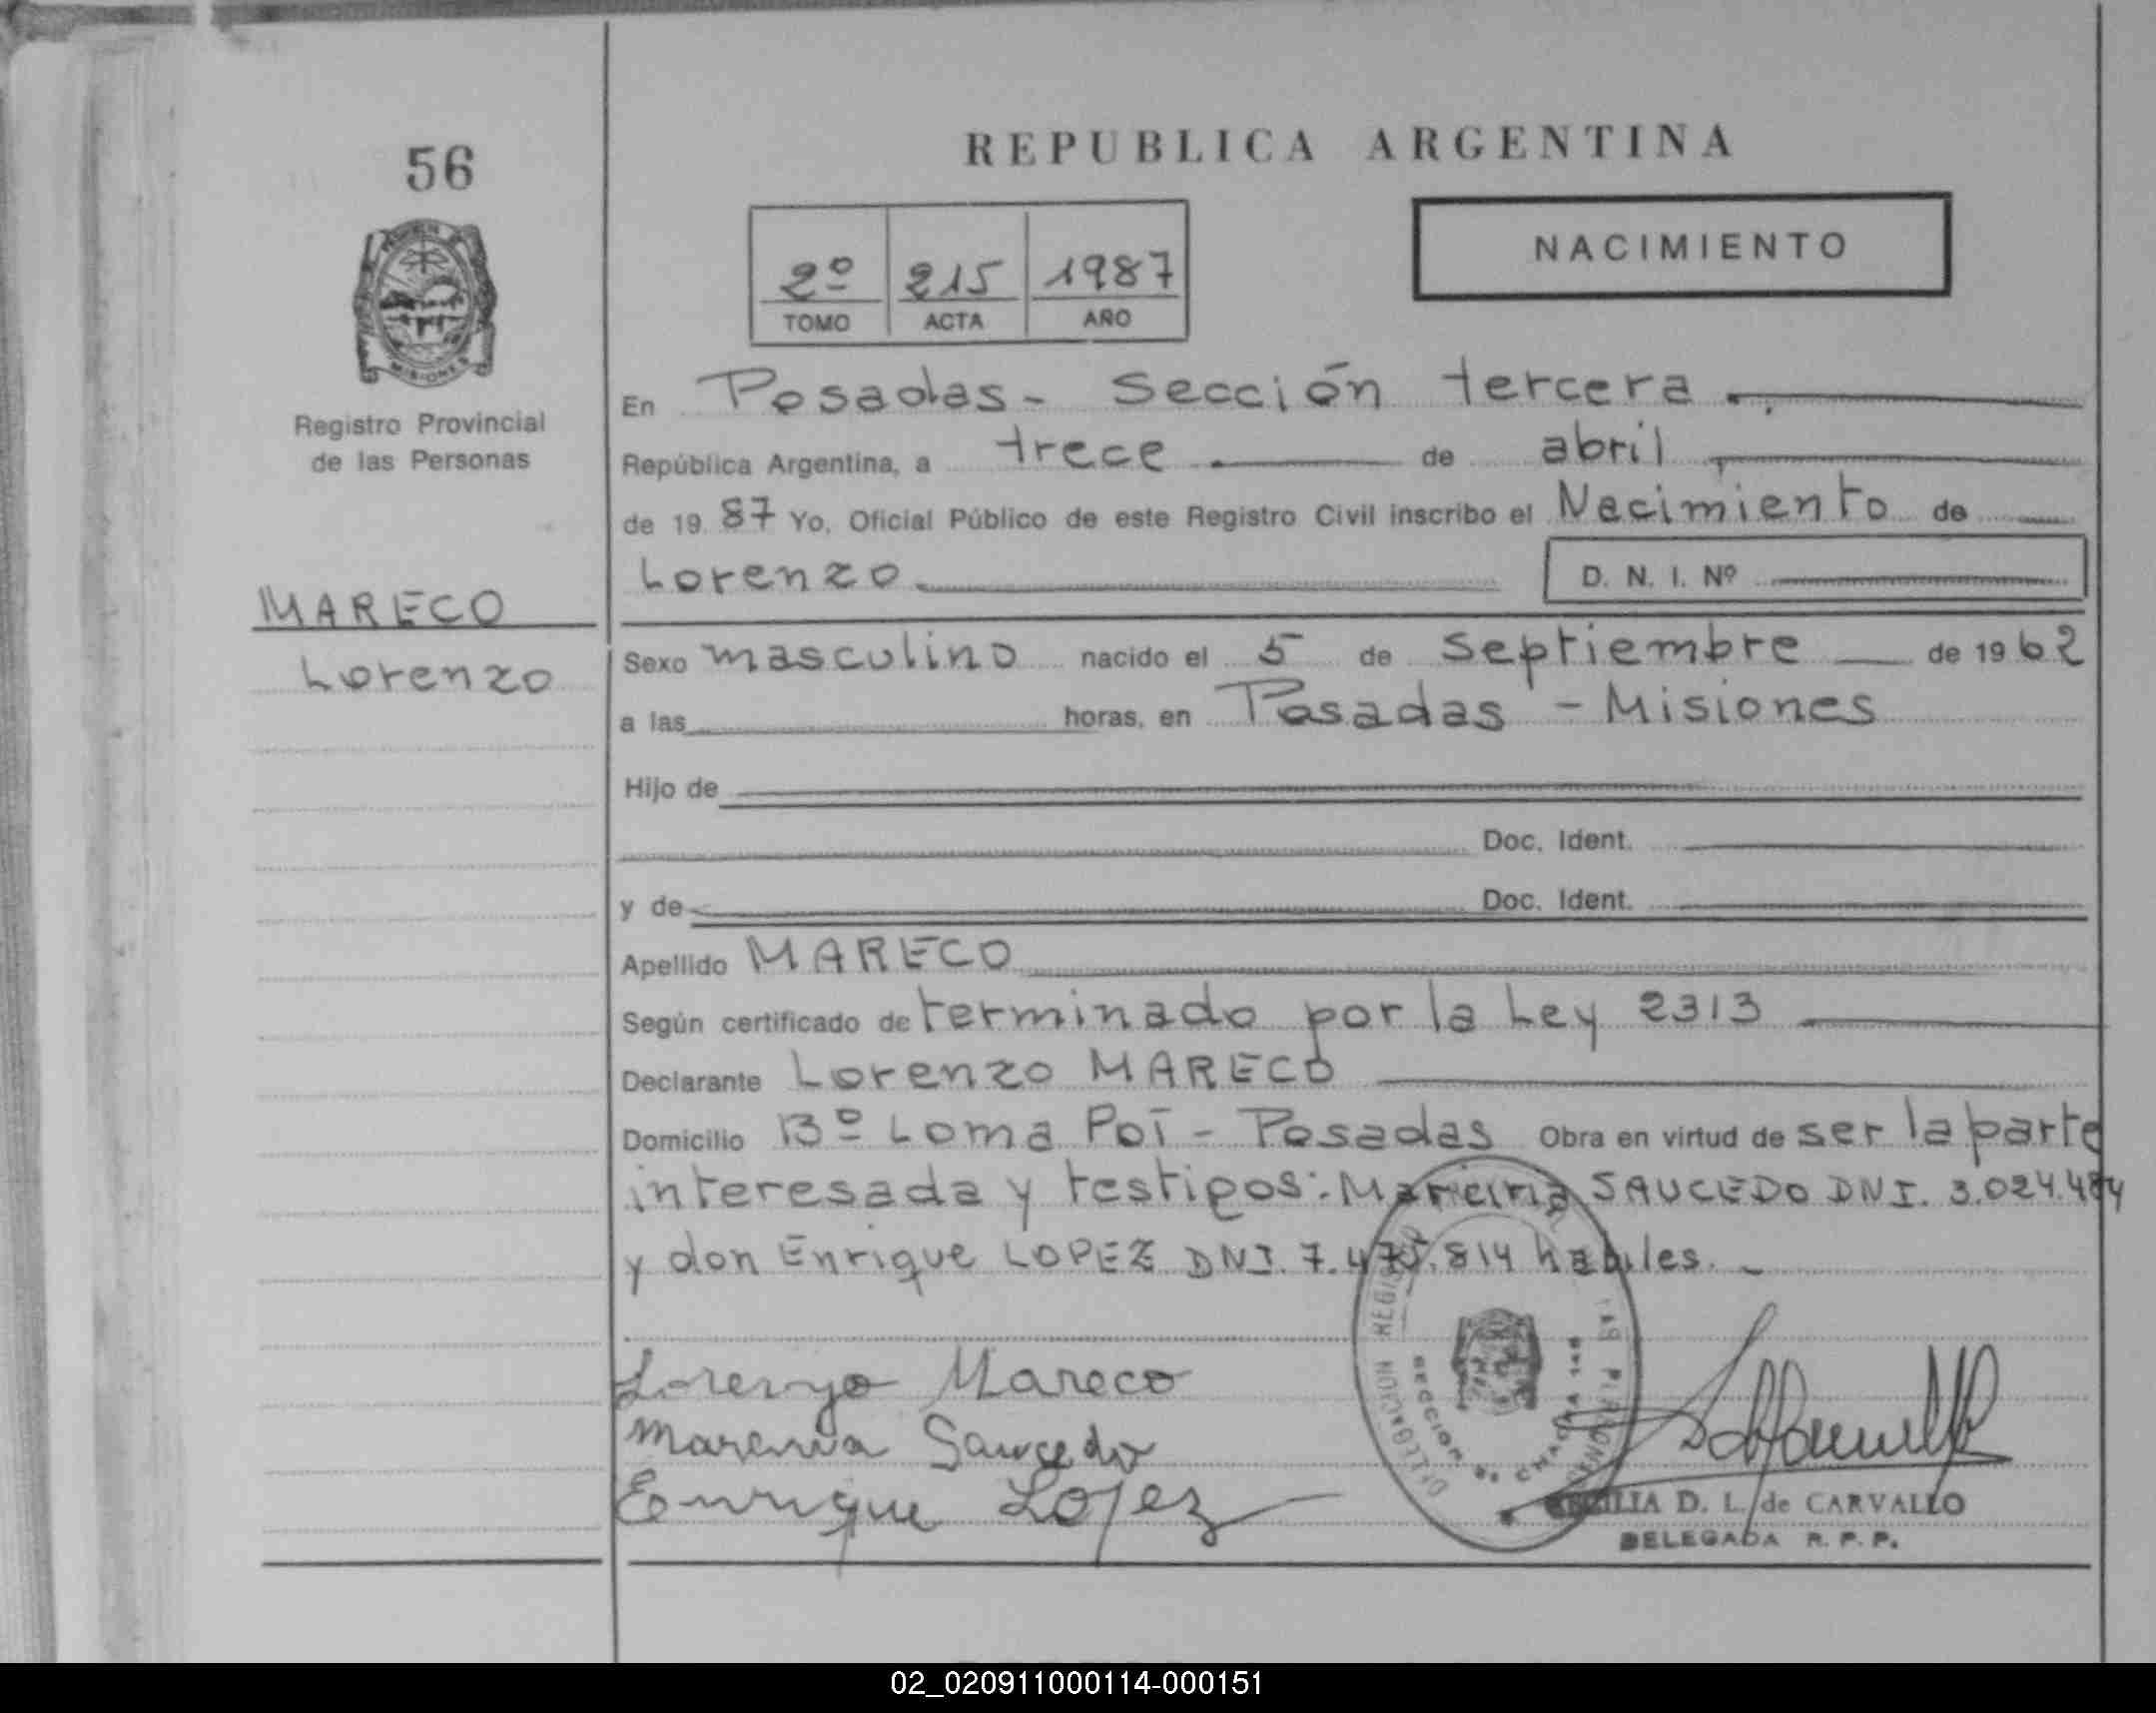 56
REPUBLICA ARGENTINA
NACIMIENTO
2º 215 1987
TOMO ACTA AÑO
Registro Provincial
de las Personas
MARECO
Lorenzo
En Posadas - Sección tercera
República Argentina, a trece de abril
de 19 87 Yo, Oficial Público de este Registro Civil inscribo el Nacimiento de
Lorenzo D. N. I. Nº
Sexo masculino nacido el 5 de septiembre de 19 62
a las horas, en Posadas - Misiones
Hijo de
Doc. Ident.
y de Doc. Ident.
Apellido MARECO
Según certificado de terminado por la Ley 2313
Declarante Lorenzo MARECO
Domicilio Bº Loma Poí - Posadas Obra en virtud de ser la parte
interesada y testigos: SAUCEDO DNI. 3.024.
y don Enrique LOPEZ DNI. 7.475.814 habiles.
Lorenzo Mareco
Saucedo
Enrique Lopez
D. L. de CARVALLO
DELEGADA R. P. P.
02_020911000114-000151